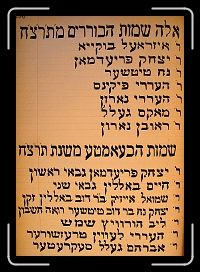 אלה שמות הבוררים מתרצ״ח
ר׳ איזראעל בוקייא
ר׳ יצחק פריעדמאן
ר׳ נח טיטשער
ר׳ העררי פיקינס
ר׳ העררי נארון
ר׳ מאקס געלל
ר׳ ראובן נארון
שמות הכעאמטע משנת תרצח
ר׳ יצחק פריעדמאן גבאי ראשון
ר׳ חיים באללין גבאי שני
ר׳ שמואל אייזיק בר דוב באללין זקן
ר׳ יצחק נח בר דוב טיטשער רואה חשבון
ר׳ ליב הורוויץ שמש
ר׳ העררי לעווין טרעזשורער
ר׳ אברהם געלל סעקרעטער